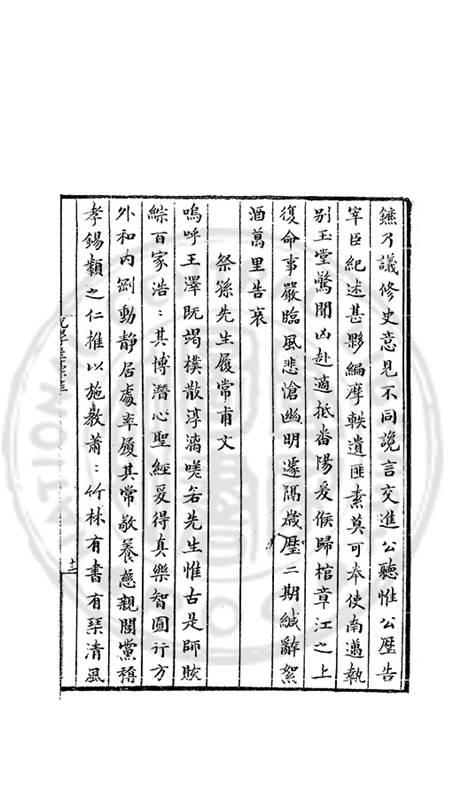 鑣乃議修史意見不同讒言交進公聽惟公歷告
宰臣紀述甚夥編摩軼遺匪素莫可奉使南邁執
别玉堂驚聞凶赴適抵番陽爰候歸棺章江之上
復命事嚴臨風悲愴幽明遽隔歲歷二期緘辭絮
酒萬里告哀
祭孫先生履常甫文
嗚呼王澤既竭樸散淳漓嗟若先生惟古是師賅
綜百家浩浩其博潛心聖經爰得真樂智圓行方
外和内剛動靜居處率履其常敬養慈親閭黨稱
孝錫類之仁推以施教蕭蕭竹林有書有琹清風